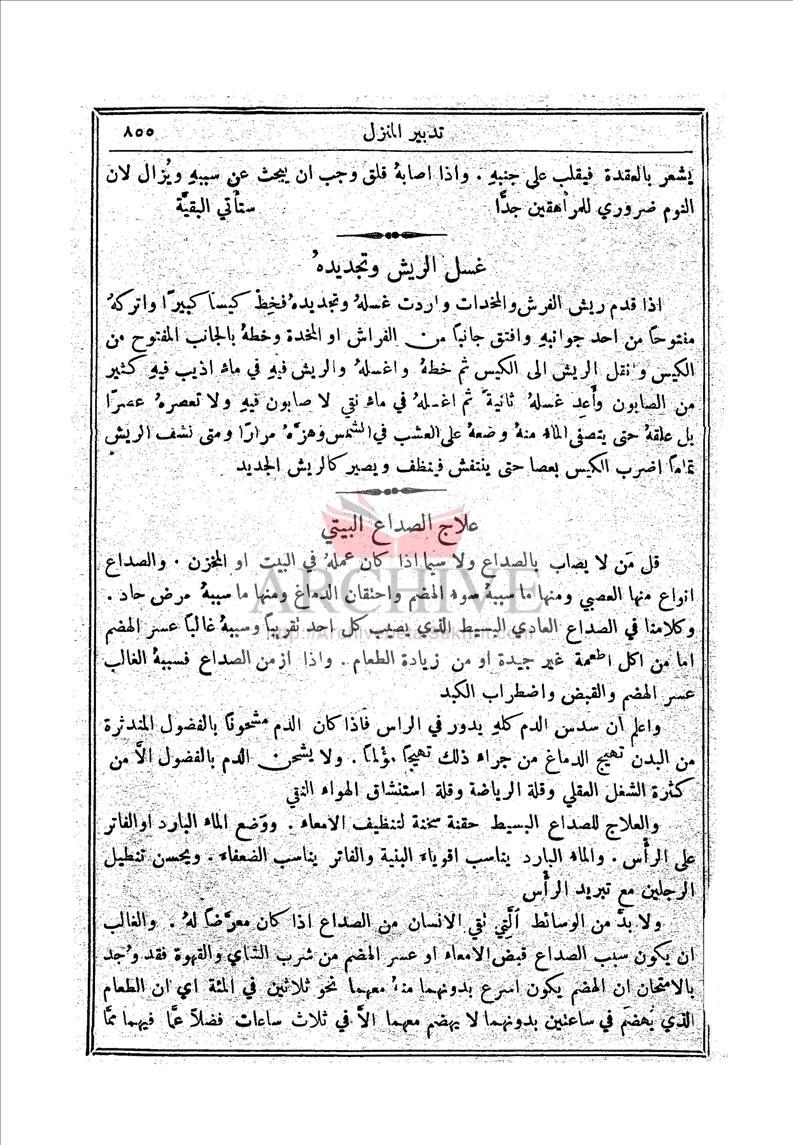 تدبير المنزل ٨٥٥
يشعر بالعقدة فيقلب على جنبهِ . واذا اصابهُ قلق وجب ان يبحث عن سببهِ ويُزال لان
النوم ضروري للمراهقين جدًّا ستأتي البقيَّة
غسل الريش وتجديدهُ
اذا قدم ريش الفرش والمخدات واردت غسلهُ وتجديدهُ فخِط كيسًا كبيرًا واتركهُ
مفتوحًا من احد جوانبهِ وافتق جانبًا من الفراش او المخدة وخطهُ بالجانب المفتوح من
الكيس وانقل الريش الى الكيس ثم خطهُ واغسلهُ والريش فيهِ في ماءٍ اذيب فيهِ كثير
من الصابون وأَعِد غسلهُ ثانيةً ثم اغسلهُ في ماءٍ نقي لا صابون فيهِ ولا تعصرهُ عصرًا
بل علقهُ حتى يتصفى الماءُ منهُ وضعهُ على العشب في الشمس وهزَّهُ مرارًا ومتى نشف الريش
تمامًا اضرب الكيس بعصا حتى ينتفش فينظف ويصير كالريش الجديد
علاج الصداع البيتي
قل مَن لا يصاب بالصداع ولا سيما اذا كان عملهُ في البيت او المخزن . والصداع
انواع منها العصبي ومنها ما سببهُ سوء الهضم واحتقان الدماغ ومنها ما سببهُ مرض حاد .
وكلامنا في الصداع العادي البسيط الذي يصيب كل احد تقريبًا وسببهُ غالبًا عسر الهضم
اما من اكل اطعمة غير جيدة او من زيادة الطعام . واذا ازمن الصداع فسببهُ الغالب
عسر الهضم والقبض واضطراب الكبد
واعلم ان سدس الدم كلهِ يدور في الراس فاذا كان الدم مشحونًا بالفضول المندثرة
من البدن تهيج الدماغ من جراء ذلك تهيجًا مؤلمًا . ولا يشحن الدم بالفضول الاَّ من
كثرة الشغل العقلي وقلة الرياضة وقلة استنشاق الهواء النقي
والعلاج للصداع البسيط حقنة سخنة لتنظيف الامعاء . ووَضع الماء البارد او الفاتر
على الرأْس . والماء البارد يناسب اقوياء البنية والفاتر يناسب الضعفاء . ويحسن تنطيل
الرجلين مع تبريد الرأْس
ولا بدَّ من الوسائط الَّتي تقي الانسان من الصداع اذا كان معرَّضًا لهُ . والغالب
ان يكون سبب الصداع قبض الامعاء او عسر الهضم من شرب الشاي والقهوة فقد وُجد
بالامتحان ان الهضم يكون اسرع بدونهما منهُ معهما نحو ثلاثين في المئة اي ان الطعام
الذي يُهضم في ساعتين بدونهما لا يهضم معهما الاَّ في ثلاث ساعات فضلاً عمَّا فيهما ممَّا
ARCHIVE